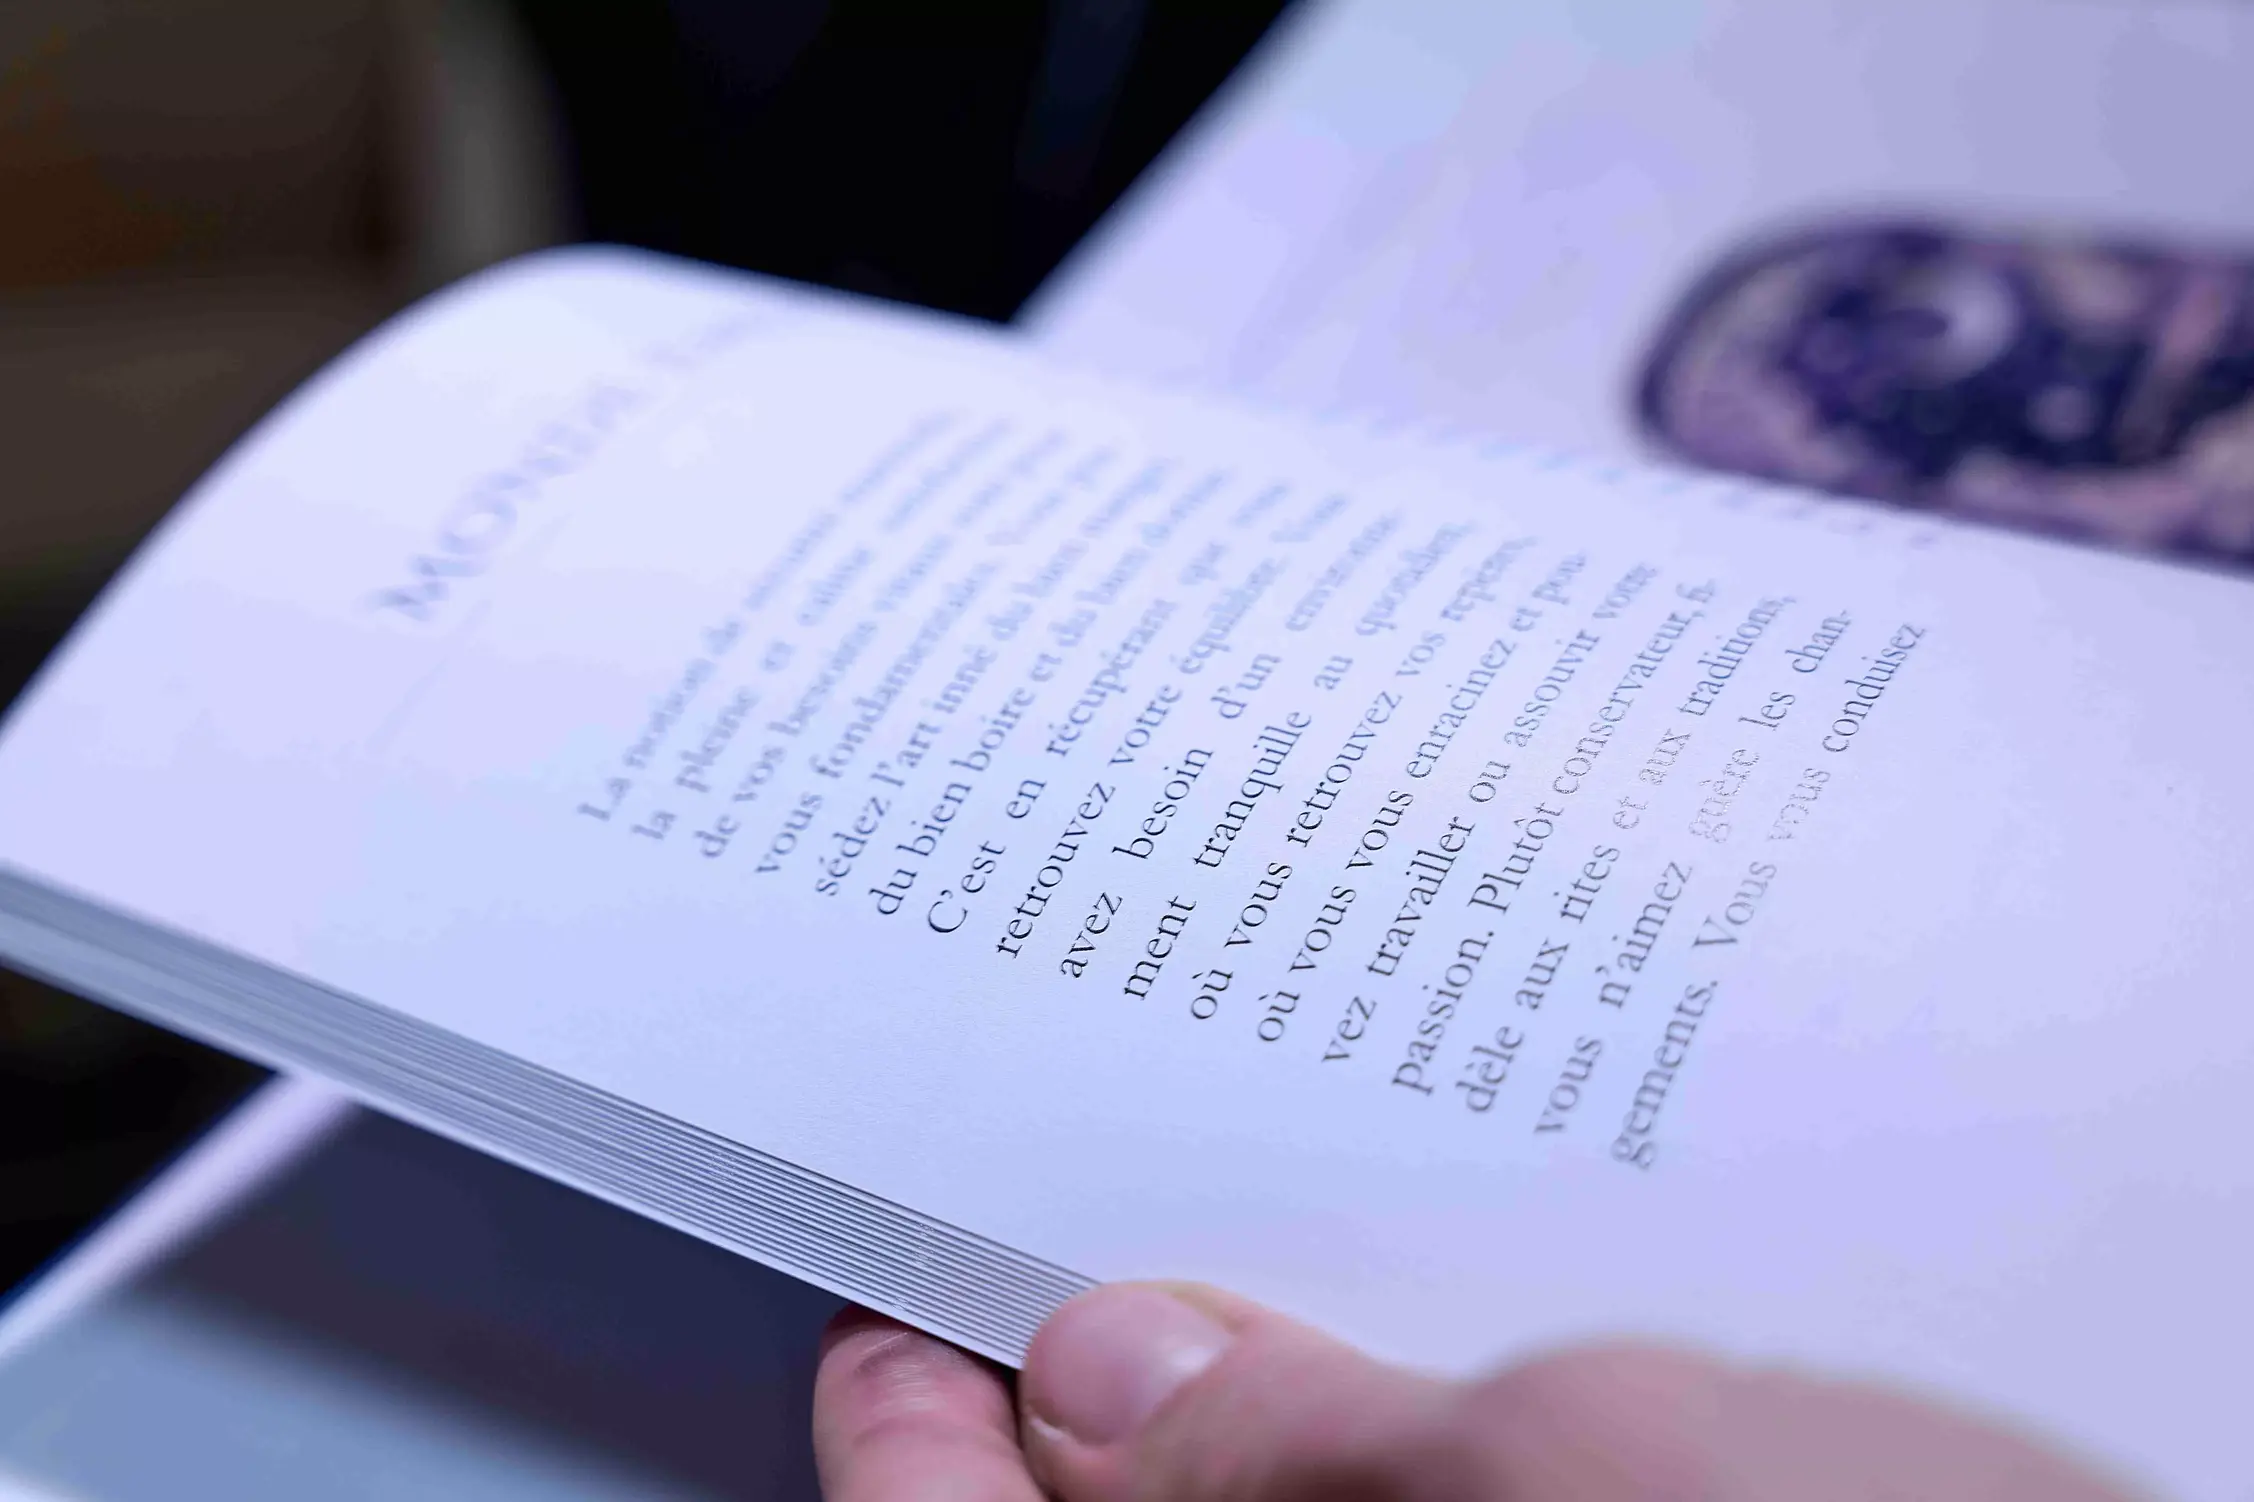 La notion de
la pleine et calme
de vos besoins vitaux
vous fondamentales. Vous
sédez l'art inné du bien manger
du bien boire et du bien dormir
C'est en récupérant que vous
retrouvez votre équilibre. Vous
avez besoin d'un environne-
ment tranquille au quotidien,
où vous retrouvez vos repères,
où vous vous enracinez et pou-
vez travailler ou assouvir votre
passion. Plutôt conservateur, fi-
dèle aux rites et aux traditions,
vous n'aimez guère les chan-
gements. Vous vous conduisez